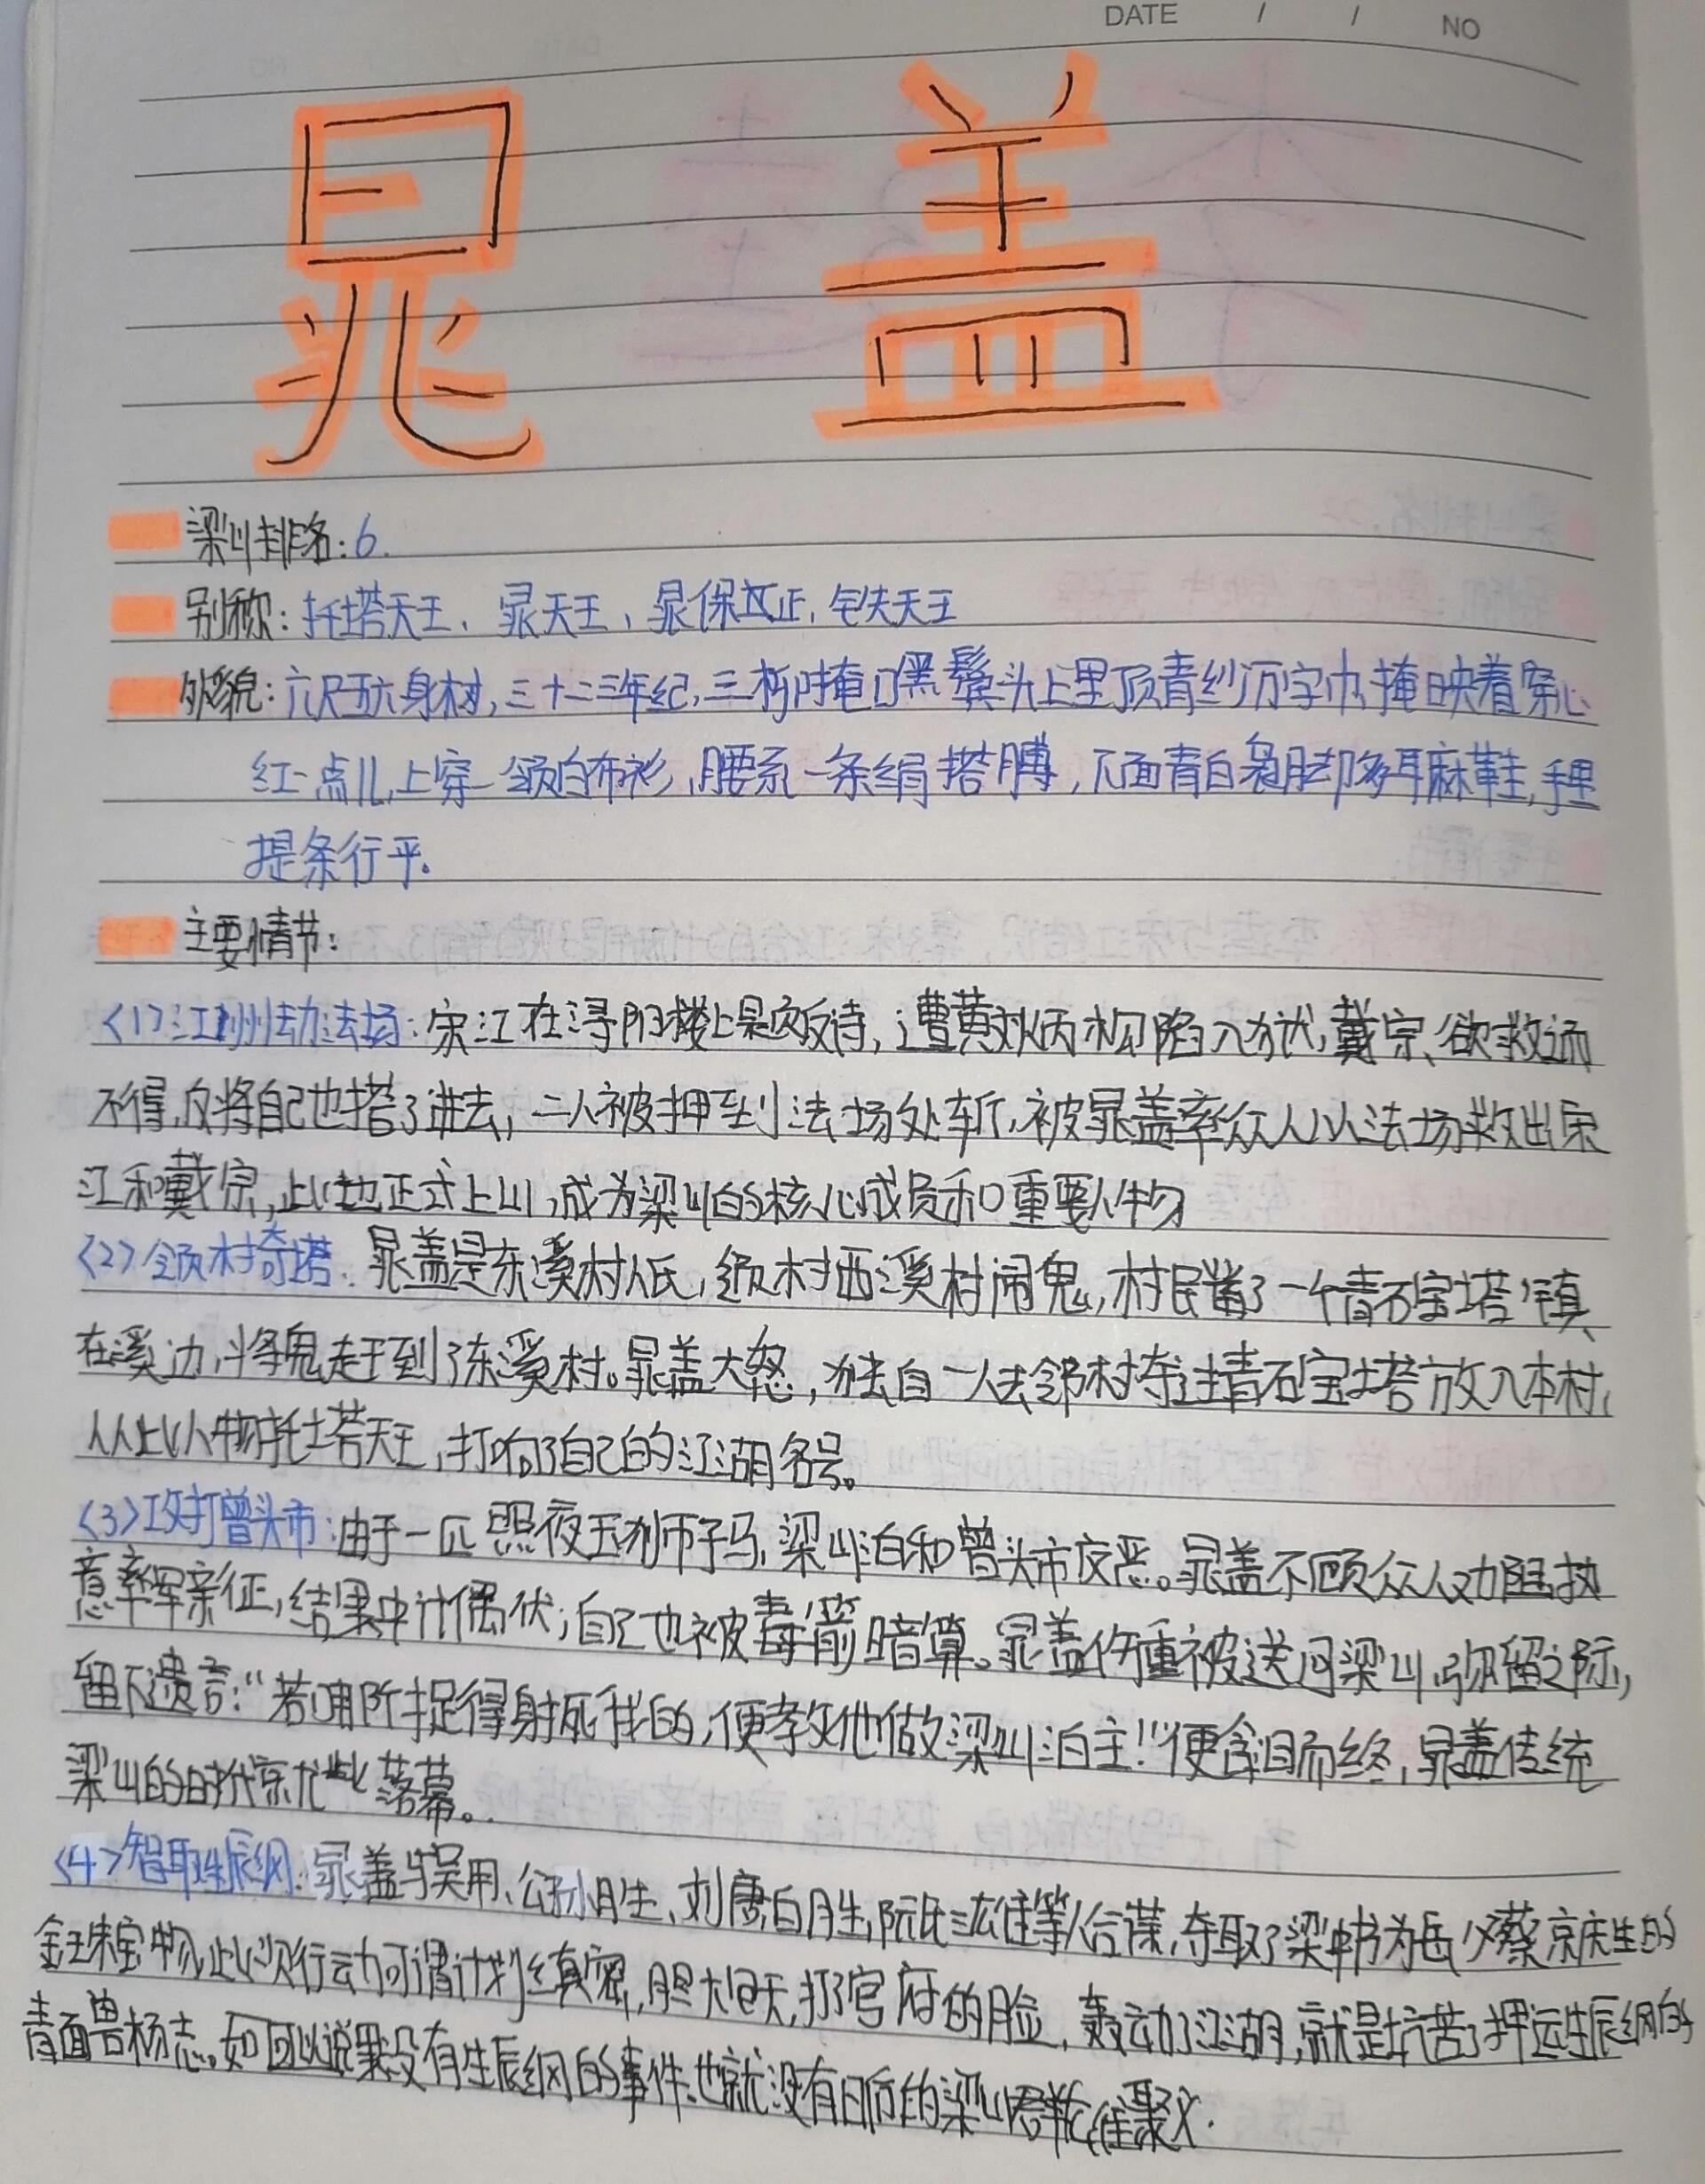 DATE / / NO
晁 盖
梁山排名：6.
别称：托塔天王、晁天王、晁保正，铁天王
外貌：六尺五六身材，三十二三年纪，三柳掩口黑髯头上里顶青纱万字巾，掩映着穿心
红一点儿，上穿一领白布衫，腰系一条绢搭膊，下面青白袅脚多耳麻鞋，手里
提条行平。
主要情节：
〈1〉江州劫法场：宋江在浔阳楼上题反诗，遭黄文炳构陷入狱，戴宗欲救而
不得，反将自己也搭了进去，二人被押到法场处斩，被晁盖率众人从法场救出宋
江和戴宗，此也正式上山，成为梁山的核心成员和重要人物
〈2〉领村夺塔：晁盖是东溪村人氏，邻村西溪村闹鬼，村民凿了一个青石宝塔镇
在溪边，将鬼赶到了东溪村。晁盖大怒，独自一人去邻村夺过青石宝塔放入本村，
人从此人称托塔天王，打响了自己的江湖名号。
〈3〉攻打曾头市：由于一匹照夜玉狮子马，梁山泊和曾头市交恶。晁盖不顾众人劝阻执
意率军亲征，结果中计偶伏；自己也被毒箭暗算。晁盖伤重被送回梁山，弥留之际，
留下遗言：“若哪个捉得射死我的，便教他做梁山泊主！”便含目而终，晁盖传统
梁山的时代就此落幕。
〈4〉智取生辰纲：晁盖与吴用、公孙胜、刘唐，白胜，阮氏三雄等人合谋，夺取了梁中书为岳父蔡京庆生的
金珠宝物，此次行动可谓计划缜密，胆大包天，打了官府的脸，轰动了江湖，就是坑苦了押运生辰纲的
青面兽杨志。如可以说果没有生辰纲的事件，也就没有日后的梁山群雄聚义.